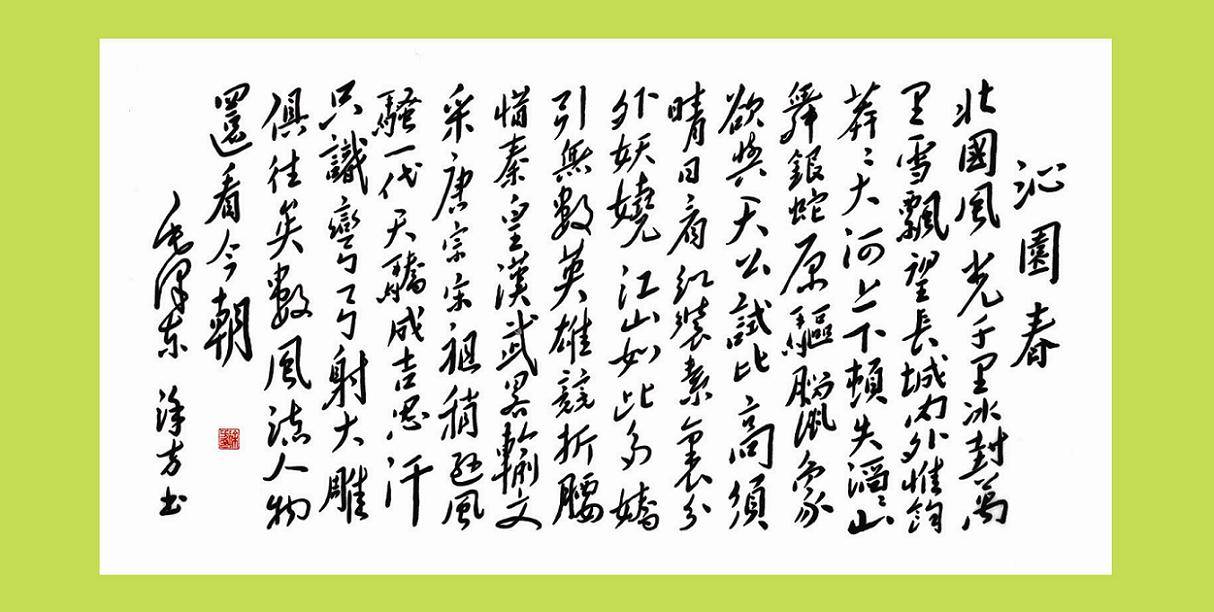 沁園春
北國風光千里冰封萬
里雪飄望長城內外惟餘
莽〻大河上下頓失滔〻山
舞銀蛇原驅臘象
欲與天公試比高須
晴日看紅裝素裹分
外妖嬈江山如此多嬌
引無數英雄競折腰
惜秦皇漢武略輸文
采唐宗宋祖稍遜風
騷一代天驕成吉思汗
只識彎弓射大雕
俱往矣數風流人物
還看今朝
毛澤東 涂方书